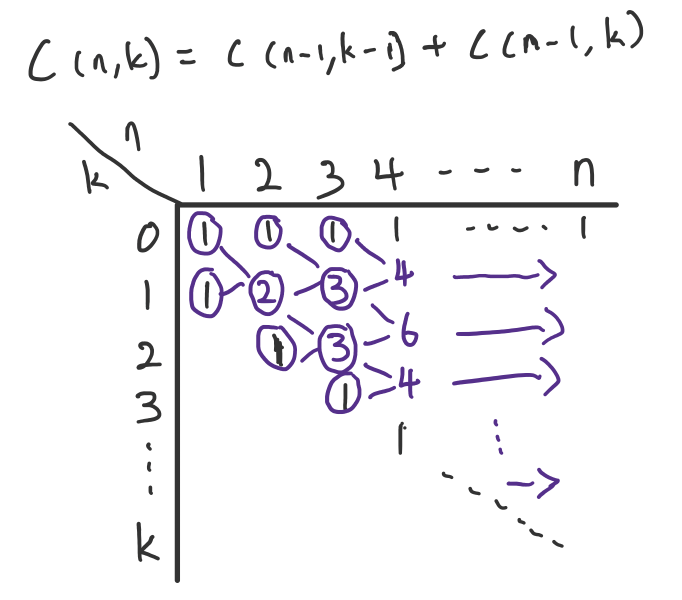 C(n,k) = C(n-1,k-1) + C(n-1,k)
n
k 1 2 3 4 --- n
0 1 1 1 1 ---- 1
1 1 2 3 4
2 1 3 6
3 1 4
1
k